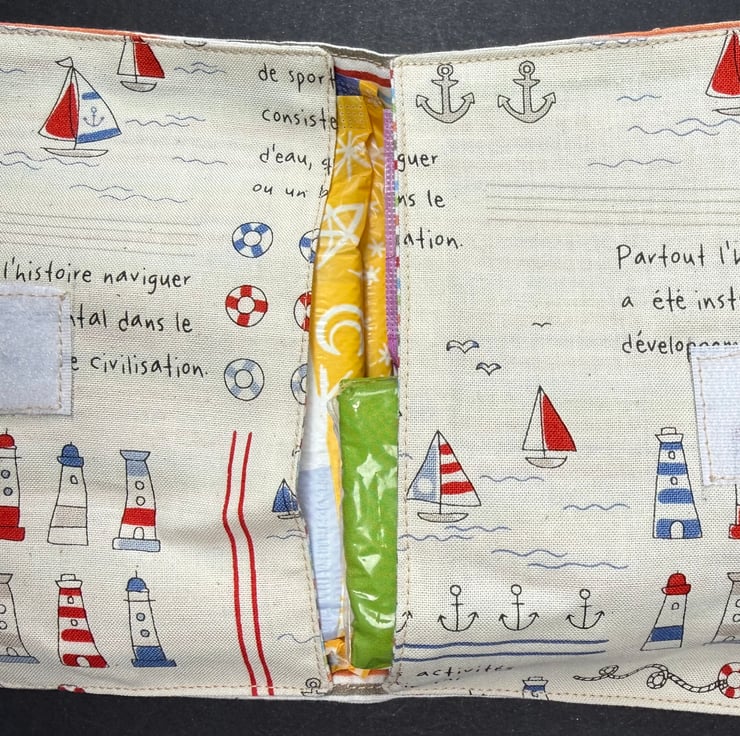 de sport
consiste
d'eau, guer
ou un ns le
ation.
l'histoire naviguer
tal dans le
e civilisation.
Partout l'
a été inst
dévelop
activités